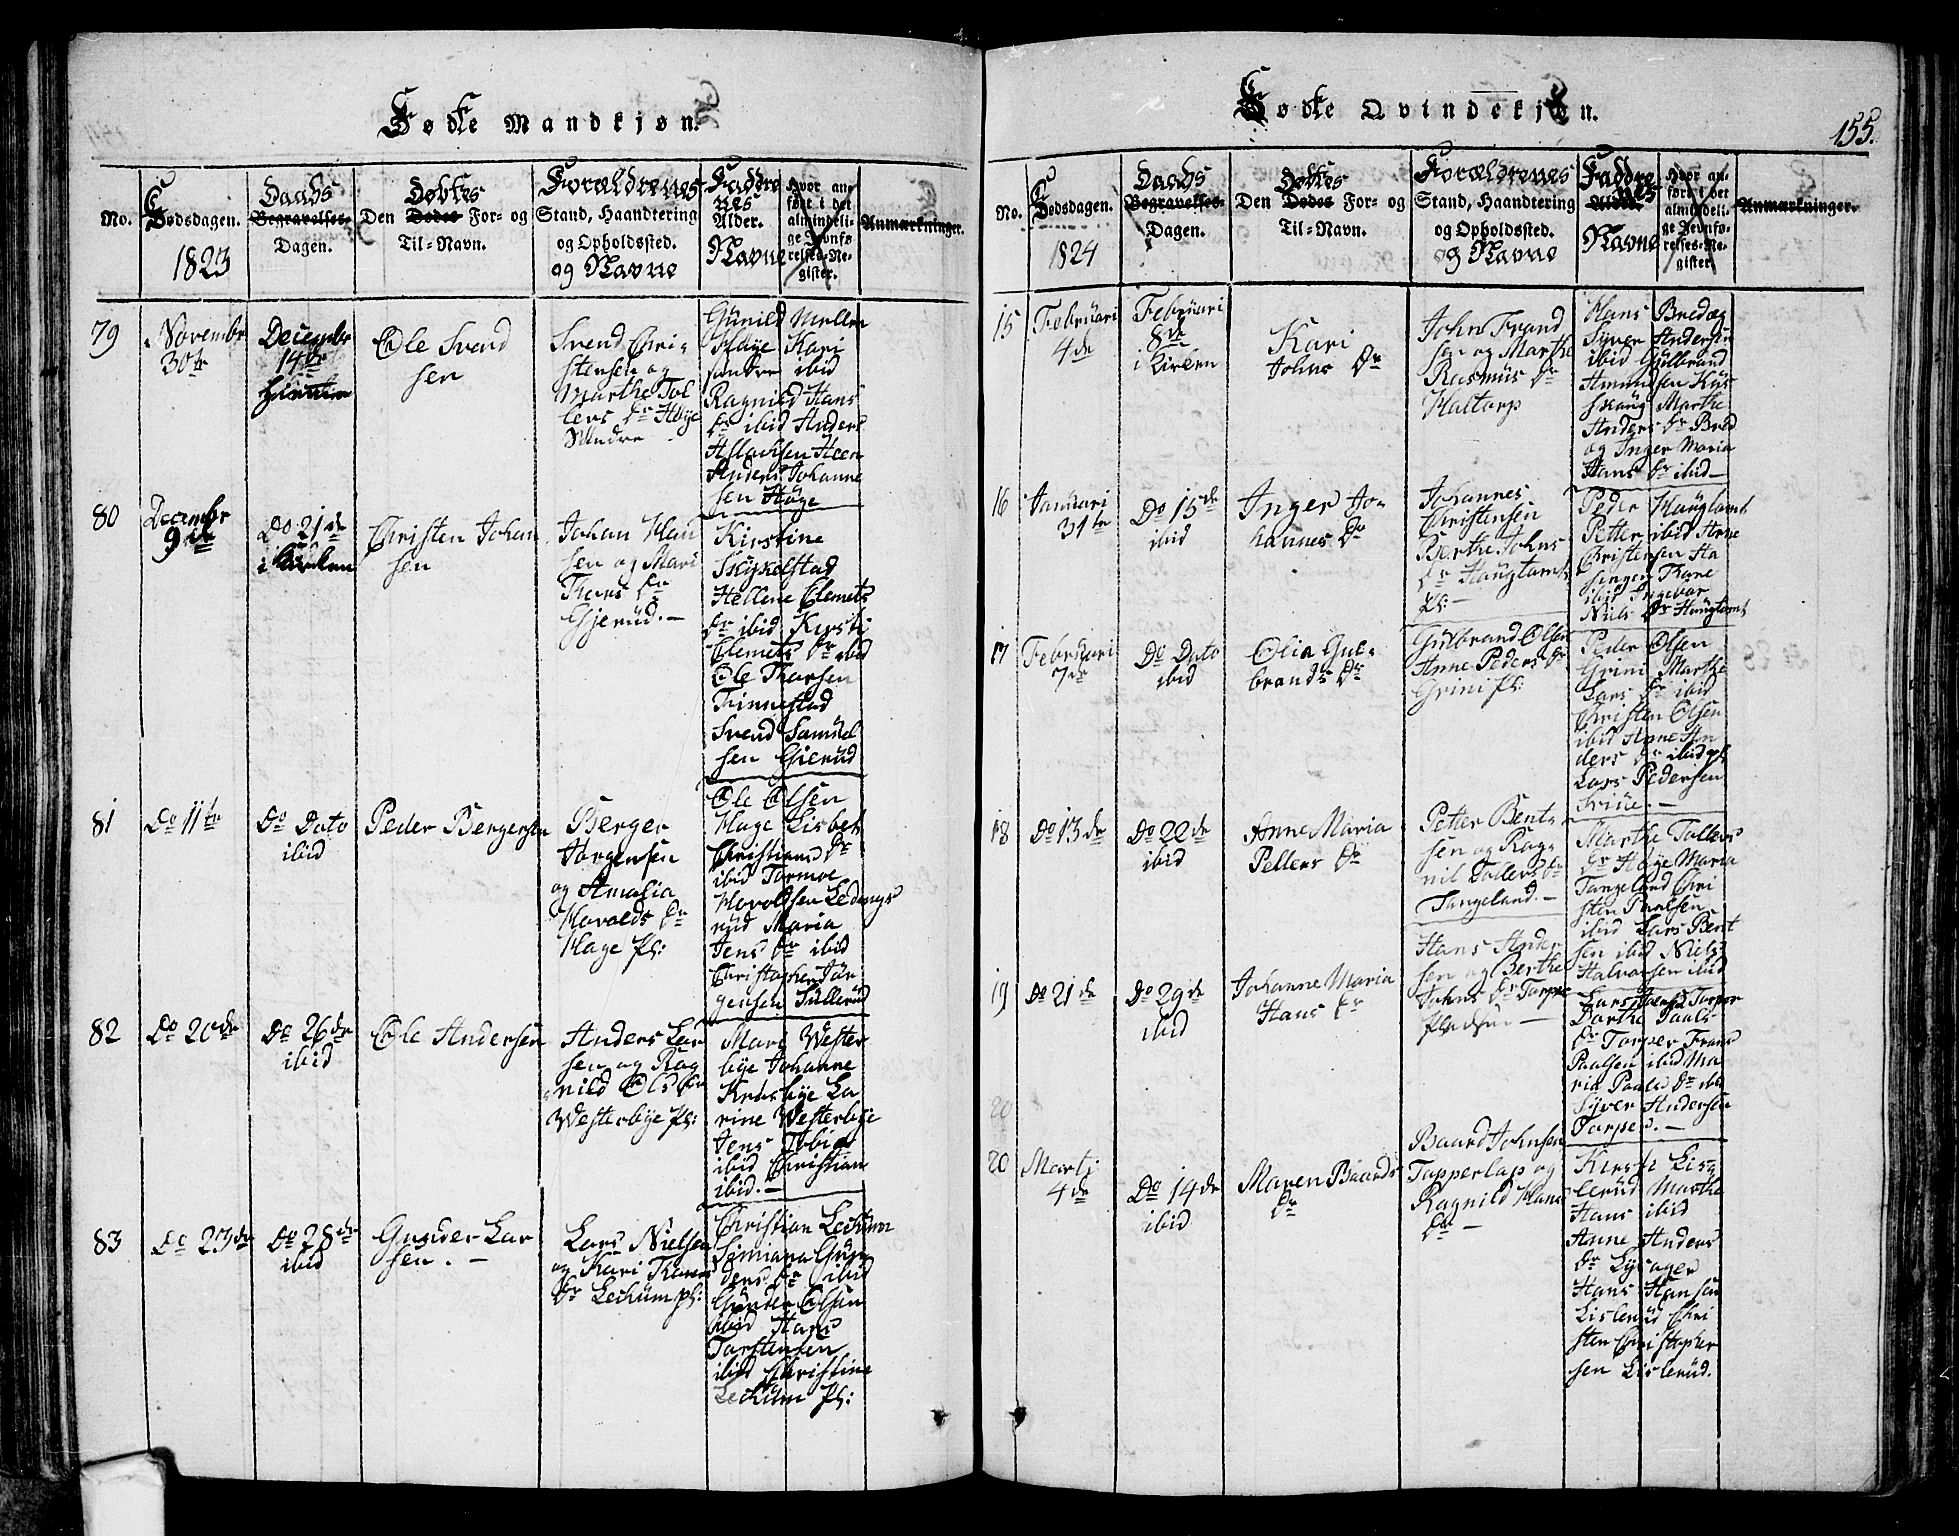 Fødte Mandkjøn.
No.
Fødsdagen.
1823
Daabs
Begravelses-
Dagen.
Døbtes
Den Dødes For- og
Til-Navn.
Forældrenes
Stand, Haandtering
og Opholdssted.
og Navne
Faddre
nes
Alder.
Navne
Hvor an-
ført i det
almindeli-
ge Jevnfø-
relses-Re-
gister.
Anmærkninger.
79
Novembr
30te
Decembr
14de
Ole Svend
sen
Svend Chri-
stensen og
Marthe Tol
lers Dr Høye
Søndre
Gunild Mellem
Høye Kari
søndre ibid
Ragnild Hans
Dr ibid Anders
Aslaksen Heen
Anders Johanne
sen Høye
80
Decembr
9de
Do 21de
i Kirken
Christen Johan
sen
Johan Han
sen og Mari
Thors Dr
Gjerud.-
Kirstine
Skykelstad
Hellene Clemets
Dr ibid Kirsti
Clemets Dr ibid
Ole Thorsen
Finnestad
Svend Samuel
sen Gierud
81
Do 11te
Do Dato
ibid
Peder Bergersen
Berger
Jørgensen
og Amalia
Harolds Dr
Hage Pl:
Ole Olsen
Hage Lisbet
Christians Dr
ibid Tormoe
Haroldsen Ledengs
rud Maria
Jens Dr ibid
Christopher Jør
gensen Sullerud
82
Do 20de
Do 26de
ibid
Ole Andersen
Anders Lar
sen og Rag
nild Ols Dr
Westerbye Pl:
Mari Wester
bye Johanne
Krosbye La
rine Westerbye
Jens Tobias
ibid Christian
ibid.-
83
Do 23de
Do 28de
ibid
Gunder Lar
sen.-
Lars Nielsen
og Kari Thores
Dr Lechum pl:
Christian Lechum
Simmana Gun
ders Dr ibid
Gunder Olsen
ibid Hans
Torstensen
ibid Christine
Lechum Pl:
Fødte Qvindekjøn.
155.
No.
Fødsdagen.
1824
Daabs
Begravelses-
Dagen.
Døbtes
Den Dødes For- og
Til-Navn.
Forældrenes
Stand, Haandtering
og Opholdssted.
og Navne
Faddre
nes
Alder.
Navne
Hvor an-
ført i det
almindeli-
ge Jevnfø-
relses-Re-
gister.
Anmærkninger.
15
Februari
4de
Februari
8de
i Kirken
Kari
Johns Dr
John Frand
sen og Marthe
Rasmus Dr
Haltorp
Hans Bredeg
Syver Andersen
ibid Gulbrand
Amundsen Kus
skoug Marthe
Anders Dr Bred
og Inger Maria
Hans Dr ibid-
16
Januari
31te
Do 15de
ibid
Inger Jo-
hannes Dr
Johannes
Christensen
Berthe Johns
Dr Haugtomt
Pl:-
Peder Haugtomt
Petter ibid Arne
Cristensen Ha
singen Thore
ibid Ingebor
Niels Dr Haugtomt
17
Februari
7de
Do Dato
ibid
Olia Gul-
brands Dr
Gulbrand Olsen
Anne Peders Dr
Grini Pl:
Peder Olsen
Grini Marthe
Lars Dr ibid
Christen Olsen
ibid Anne An
ders Dr ibid pl.
Lars Pedersen
18
Do 13de
Do 22de
ibid
Anne Maria
Petters Dr
Petter Bent-
sen og Rag-
nil Tollers Dr
Tangeland.-
Marthe Tollers
Dr Høye Maria
Tangeland Chri
sten Paalsen
ibid Lars Bent
sen ibid Niels
Halvorsen ibid
19
Do 21de
Do 29de
ibid
Johanne Maria
Hans Dr
Hans Ander
sen og Berthe
Johns Dr Torper
Pladsen-
Lars Torper
Dorthe Paals
Dr Torper Frans
Paalsen ibid Ma
ria Paals Dr ibid
Syver Andersen
Torper.-
20
20
Marti
4de
Do 14de
ibid
Maren Baards
Dr
Baard Johnsen
Topperlap og
Ragnild Hans
Dr-
Kirsti Lis-
lerud Marthe
Hans ibid
Anne Anders
Dr Lysager
Hans Hansen
Lislerud Chri
sten Christopher
sen Lislerud.